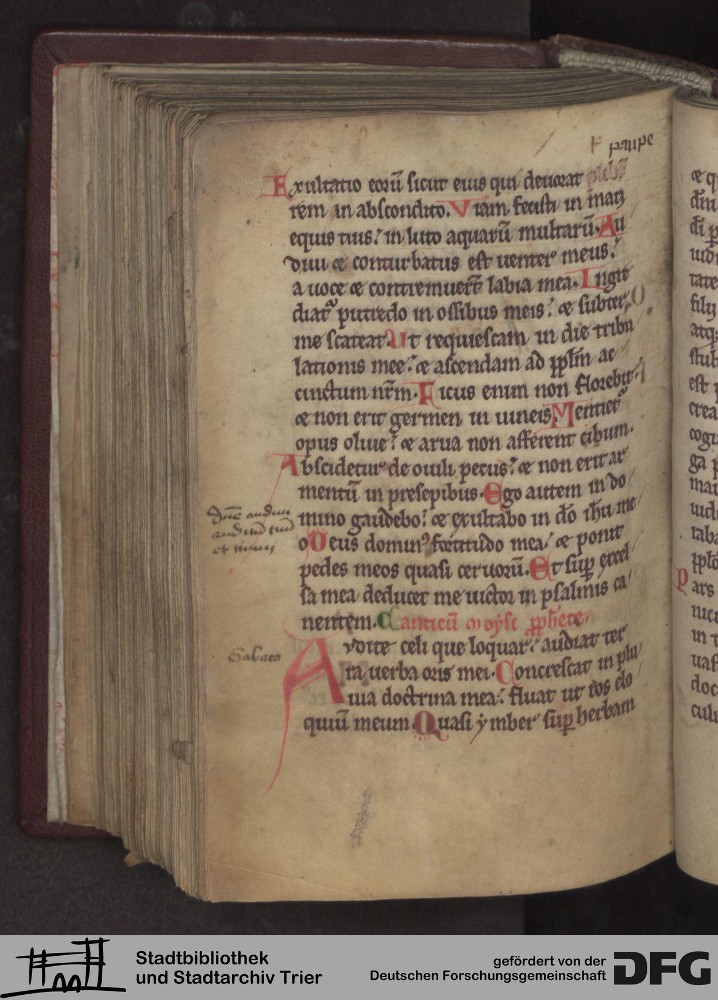 paupe
Exultatio eorū sicut eius qui deuorat
rem in abscondito. Viam fecisti in mari
equis tuis: in luto aquarū multarū. Au
diui et conturbatus est uenter meus:
a uoce et contremuert labia mea. Ingre
diat putredo in ossibus meis: et subter
me scateat. Ut requiescam in die tribu
lationis mee: et ascendam ad pplm ac
cinctum nrm. Ficus enim non florebit:
et non erit germen in uineis. Mentiet
opus oliue: et arua non afferent cibum.
Abscidetur de ouili pecus: et non erit ar
mentū in presepibus. Ego autem in do
mino gaudebo: et exultabo in do ihu me
o Deus domin fortitudo mea: et ponit
pedes meos quasi ceruorū. Et sup excel
sa mea deducet me uictor in psalmis ca
nentem. Canticū moysi pphete.
Audite celi que loquar: audiat ter
ra uerba oris mei. Concrescat in plu
uia doctrina mea: fluat ut ros elo
quiū meum. Quasi ymber sup herbam
Sabato
Stadtbibliothek
und Stadtarchiv Trier
gefördert von der
Deutschen Forschungsgemeinschaft
DFG